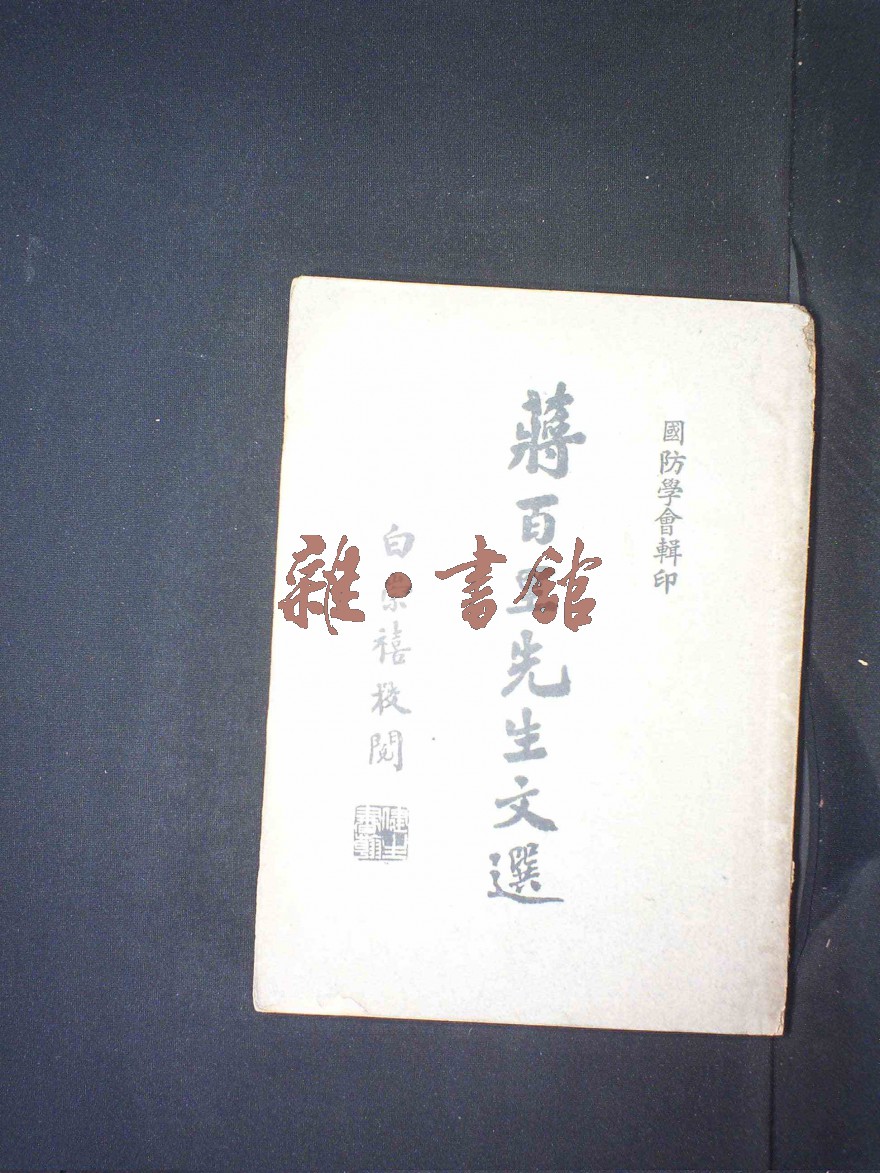 國防學會輯印
蔣百里先生文選
白崇禧校閱
健生書翰
雜·書館